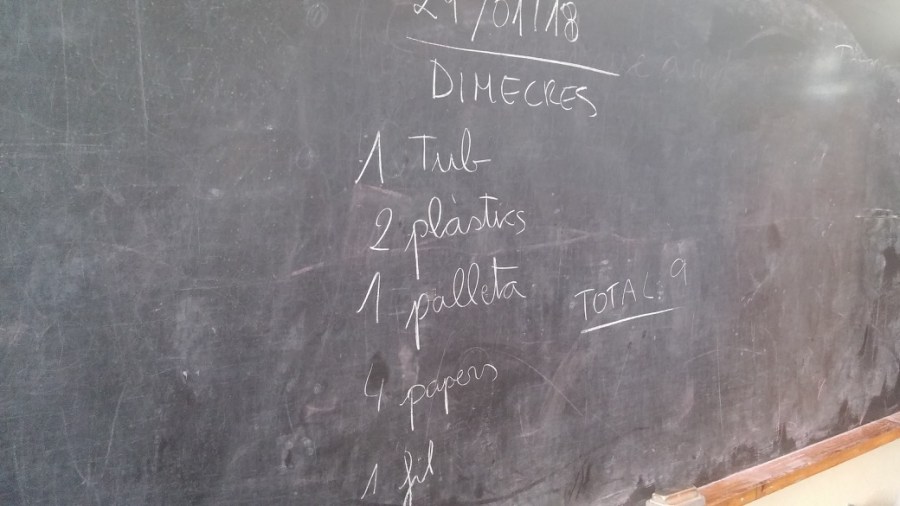 29/01/18
DIMECRES
1 Tub
2 plàstics
1 palleta
TOTAL: 9
4 papers
1 fil